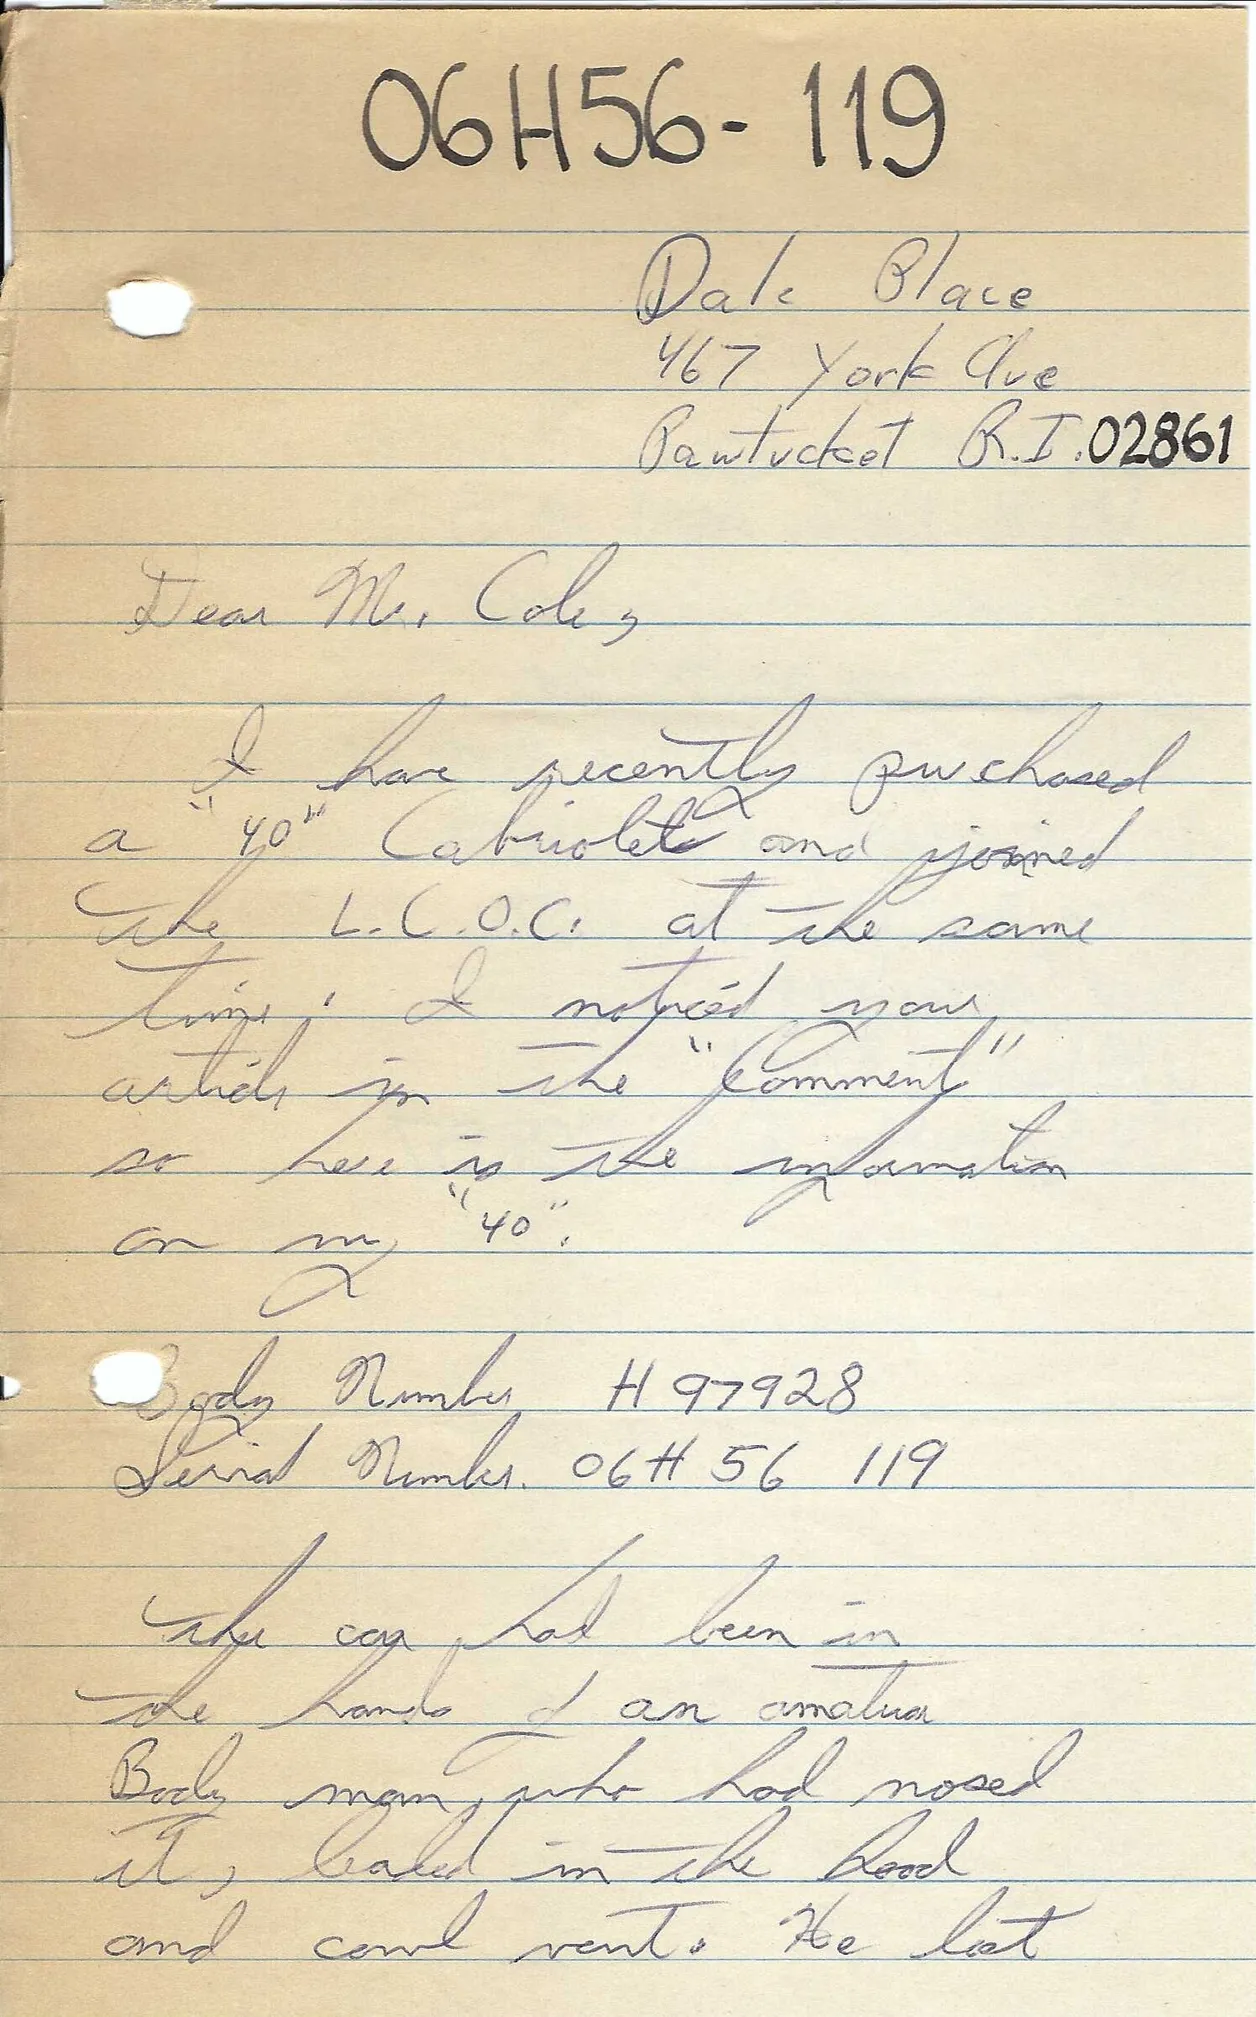 06H56-119
Dale Place
467 York Ave
Pawtucket R.I. 02861
Dear Mr. Cole,
I have recently purchased
a "40" Cabriolet and joined
the L.C.O.C. at the same
time. I noticed your
article in the "Comment"
so here is the information
on my "40".
Body Number H 97928
Serial Number. 06H 56 119
The car had been in
the hands of an amatuer
Body man, who had nosed
it, leaded in the hood
and cowl vent. He lost